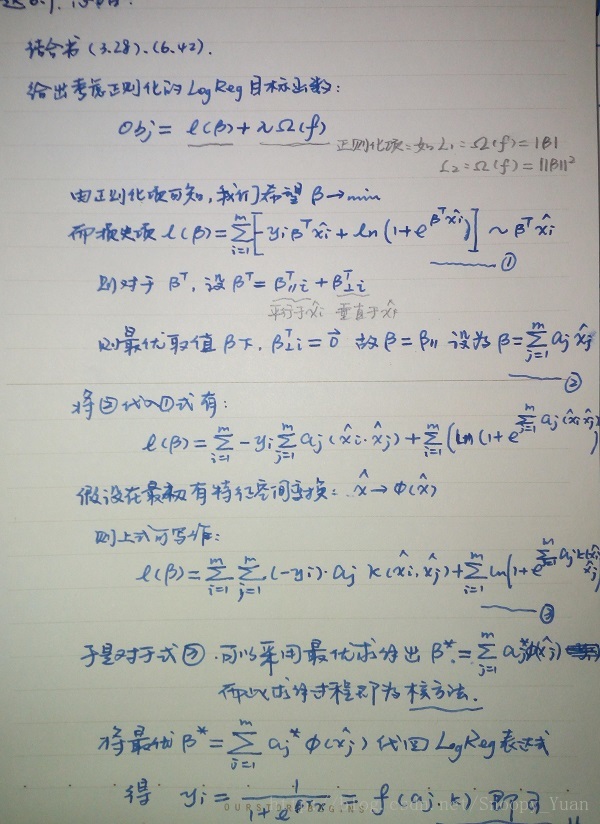 结合书 (3.28)、(6.42).
给出考虑正则化的 LogReg 目标函数:
Obj = ℓ(β) + λΩ(f)
正则化项:如 L₁:Ω(f) = |β|
L₂:Ω(f) = ||β||²
由正则化项可知,我们希望 β→min
而损失项 ℓ(β) = Σ_{i=1}^{m} [-yᵢβᵀx̂ᵢ + ln(1+e^{βᵀx̂ᵢ})] ~ βᵀx̂ᵢ
①
则对于 βᵀ, 设 βᵀ = β∥ᵀi + β⊥ᵀi
平行于x̂ᵢ 垂直于x̂ᵢ
则最优取值β下, β⊥ᵀi = 0⃗ 故 β = β∥ 设为 β = Σ_{j=1}^{m} aⱼ x̂ⱼ
②
将②代入①式有:
ℓ(β) = Σ_{i=1}^{m} -yᵢ Σ_{j=1}^{m} aⱼ (x̂ᵢ·x̂ⱼ) + Σ_{i=1}^{m} (ln(1+e^{Σ_{j=1}^{m} aⱼ(x̂ᵢx̂ⱼ)})
假设在最初有特征空间变换: x̂→φ(x̂)
则上式可写作:
ℓ(β) = Σ_{i=1}^{m} Σ_{j=1}^{m} (-yᵢ)·aⱼ k(x̂ᵢ,x̂ⱼ) + Σ_{i=1}^{m} ln(1+e^{Σ_{j=1}^{m} aⱼk(x̂ᵢ x̂ⱼ)})
③
于是对于式③,可以采用最优求解出 β* = Σ_{j=1}^{m} aⱼ*φ(x̂ⱼ)
而以求解过程即为核方法.
将最优 β* = Σ_{i=1}^{m} aⱼ* φ(x̂ⱼ) 代回 LogReg 表达式
得 yᵢ = 1/(1+e^{βᵀx}) = f(aⱼ,k) 即可